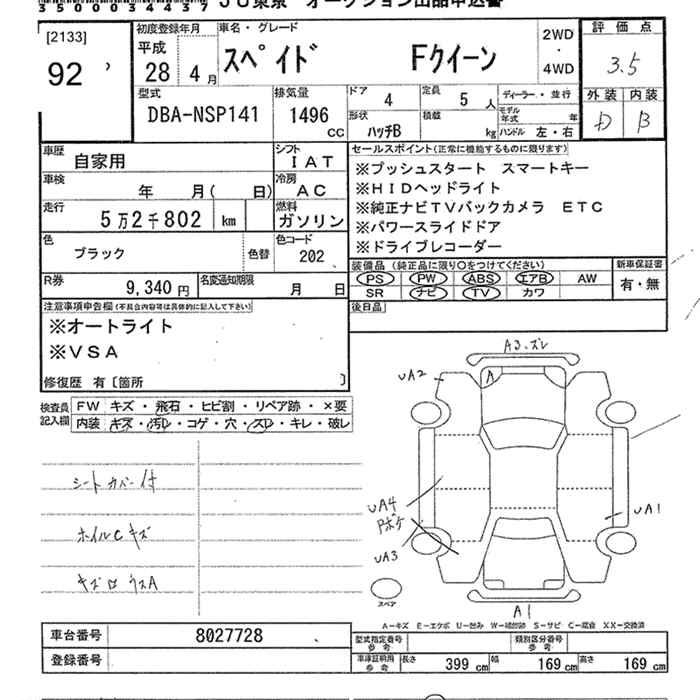 35000844437 JU東京 オークション出品申込書
[2133]
92
初度登録年月
平成
28年 4月
車名・グレード
スペイド Fクイーン
2WD
・
4WD
評価点
3.5
外装 内装
D B
型式
DBA-NSP141
排気量
1496
CC
ドア
4
定員
5人
形状
ハッチB
積載
kg
ディーラー・並行
モデル年式 年
ハンドル 左・右
車歴
自家用
シフト
IAT
車検
年 月( 日)
冷房
AC
走行
5万2千802 km
燃料
ガソリン
色
ブラック
色替
色コード
202
R券
9,340円
名変通知期限
月 日
セールスポイント(正常に機能するものに限ります)
※プッシュスタート スマートキー
※HIDヘッドライト
※純正ナビTVバックカメラ ETC
※パワースライドドア
※ドライブレコーダー
装備品(純正品に限り○をつけてください)
PS PW ABS エアB AW
SR ナビ TV カワ
新車保証書
有・無
後日品
注意事項申告欄(不具合内容等は具体的に記入して下さい)
※オートライト
※VSA
修復歴 有〔箇所 〕
検査員記入欄
FW キズ・飛石・ヒビ割・リペア跡・×要
内装 キズ・汚レ・コゲ・穴・スレ・キレ・破レ
シートカバー付
ホイルCキズ
A3.ズレ
UA2
A
UA4
Pボケ
UA3
UA1
A1
スペア
A-キズ E-エクボ U-凹み W-補修跡 S-サビ C-腐食 XX-交換済
車台番号
8027728
登録番号
型式指定番号参考
類別区分番号参考
車庫証明用参考
長さ 399cm 幅 169cm 高さ 169cm